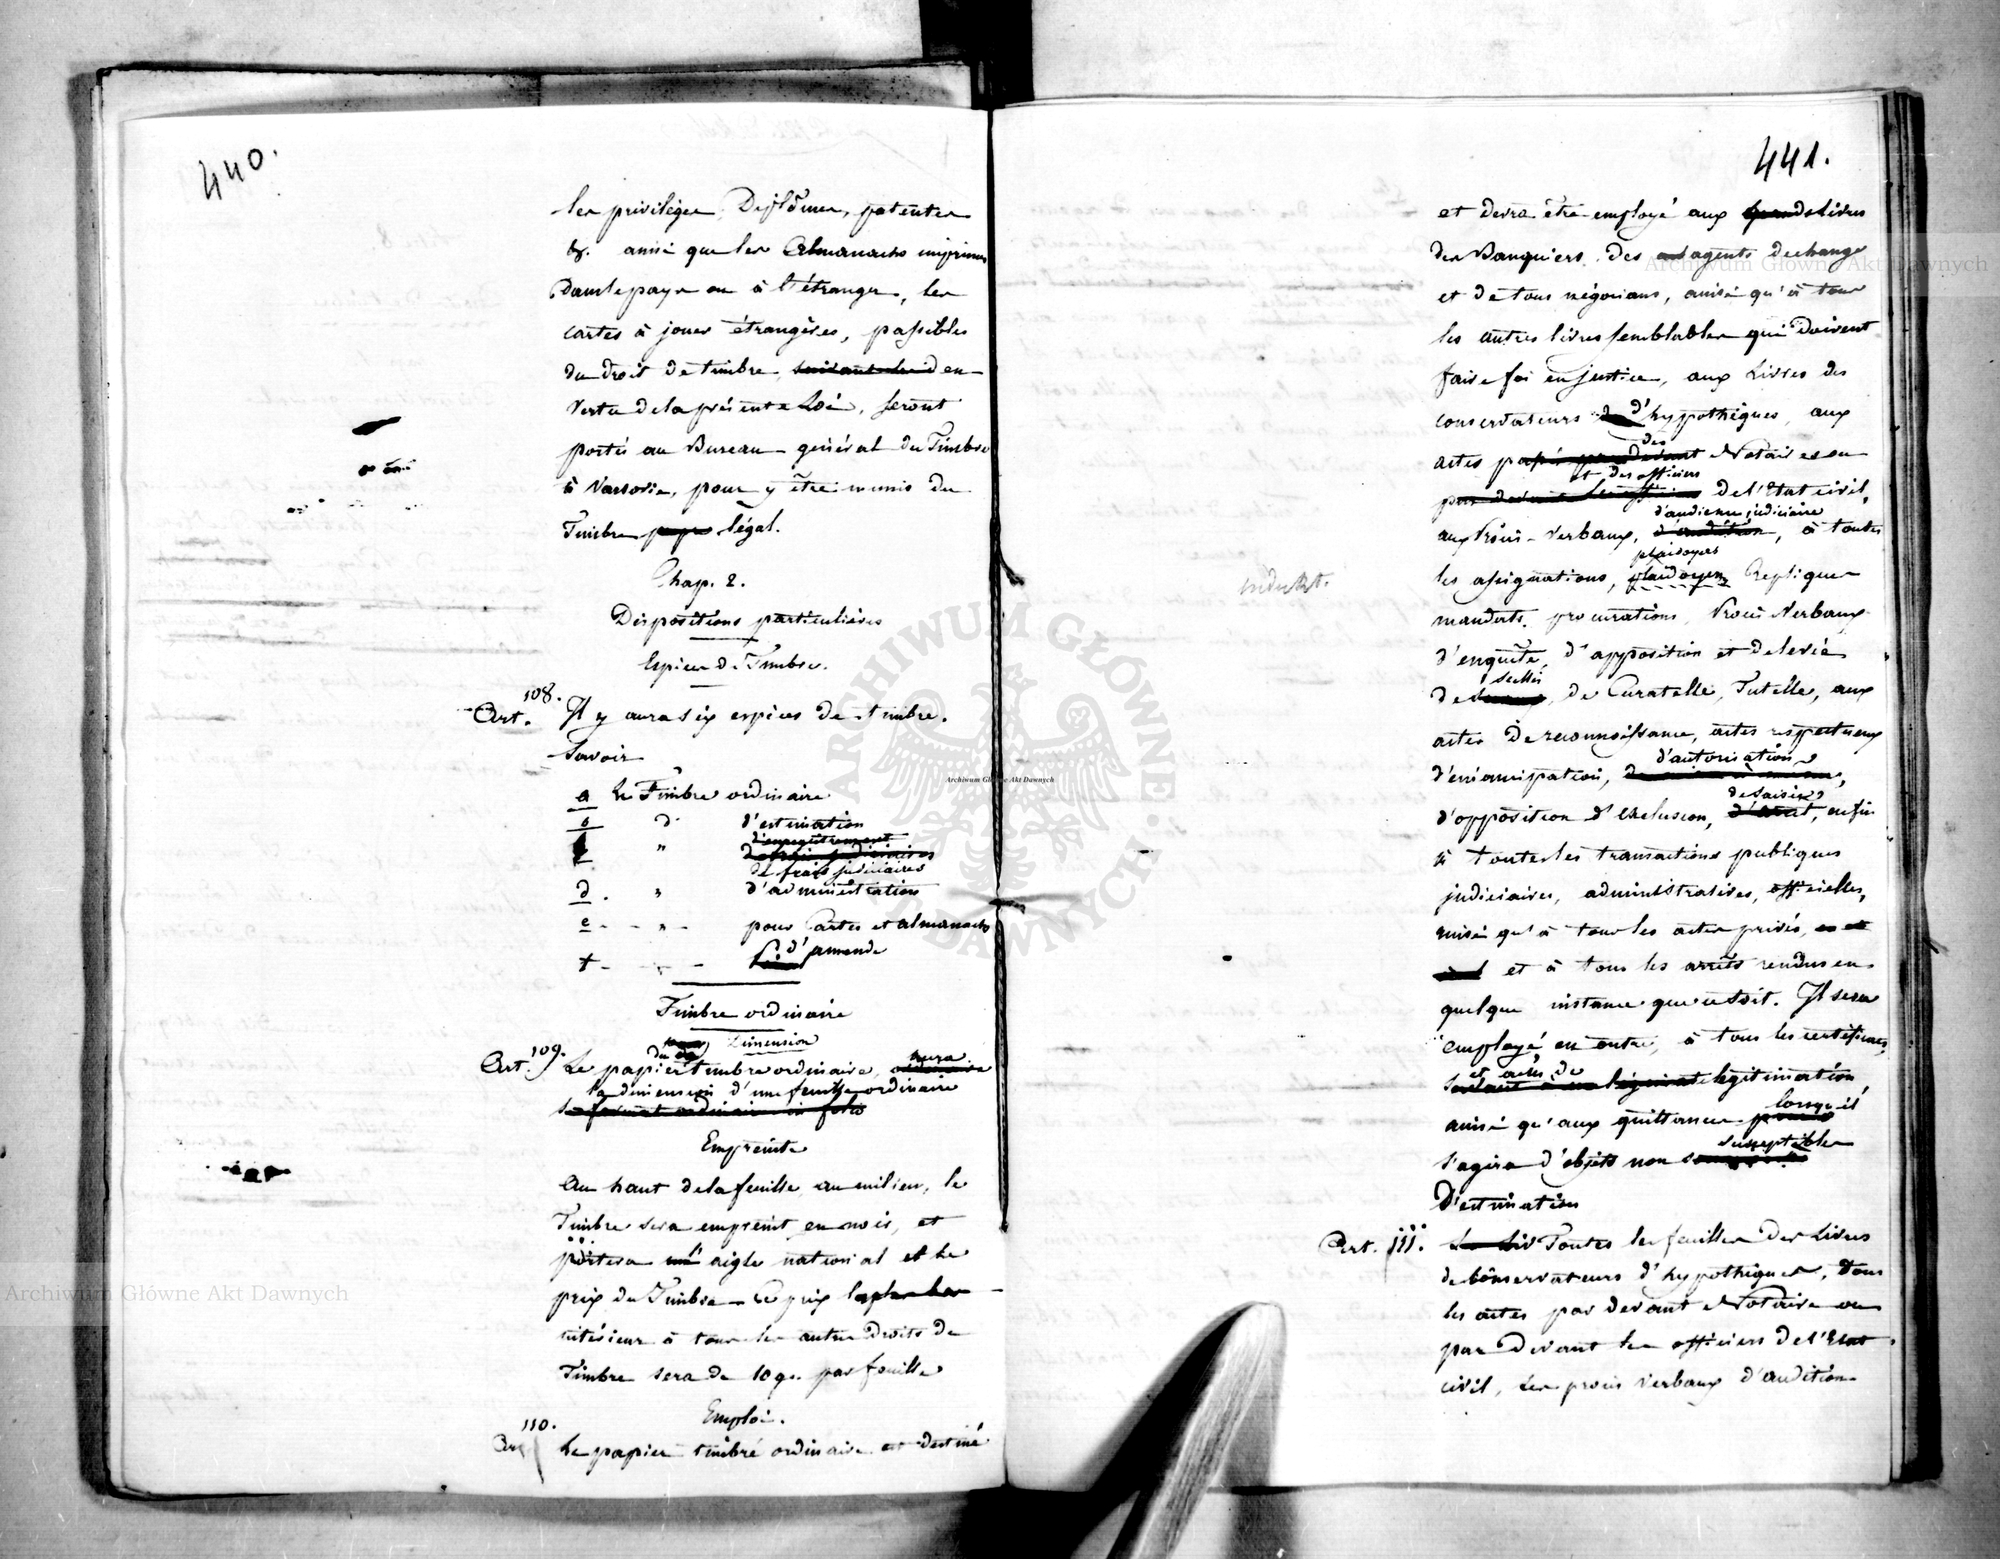 440.
les privilèges, Diplômes, patentes
&. ainsi que les Almanachs imprimés
Dans le pays ou à l'étranger, les
cartes à jouer étrangères, passibles
du droit de timbre, en
vertu de la présente Loi, seront
portés au Bureau général du Timbre
à Varsovie, pour y être munis du
Timbre légal.
Chap. 2.
Dispositions particulières
Espèces de Timbre.
Art. 108. Il y aura six espèces de timbre.
Savoir
a Le Timbre ordinaire
b d° d'estimation
d'enregistrement
" de frais judiciaires
d. " d'administration
e - - " - pour Cartes et almanachs
f - - " - d'amende
Timbre ordinaire
Dimension
Art. 109. Le papier timbre ordinaire, aura
la dimension d'une feuille ordinaire
Empreinte
Au haut de la feuille, au milieu, le
Timbre sera empreint en noir, et
portera un aigle national et le
prix du Timbre - Le prix
intérieur à tous les autres droits de
Timbre sera de 10 g. par feuille
Emploi.
Art. 110. Le papier timbré ordinaire est destiné
441.
et devra être employé aux Livres
des Banquiers, des agents d'echange
et de tous négocians, ainsi qu'à tous
les autres livres semblables qui doivent
faire foi en justice, aux Livres des
conservateurs d'hypothèques, aux
actes des Notaires ou
et des officiers de l'Etat civil,
d'audience judiciaire
aux Procès-verbaux, d'audition, à toutes
plaidoyers
les assignations, plaidoyers, Repliques
mandats, procurations, Procès Verbaux
d'enquête, d'apposition et de levée
scellés
de , de Curatelle, Tutelle, aux
actes de reconnoissance, actes respectueux
d'autorisation
d'émancipation,
de saisie
d'opposition d'exclusion, , enfin
à toutes les transactions publiques
judiciaires, administratives, officielles,
ainsi qu'à tous les actes privés,
et à tous les arrêts rendus en
quelque instance que ce soit. Il sera
employé, en outre, à tous les certificats,
et actes de légitimation,
lorsqu'il
ainsi qu'aux quittances
susceptibles
s'agira d'objets non
D'estimation
Art. 111. Toutes les feuilles des Livres
de conservateurs d'hypothèques, tous
les actes par devant Notaire ou
par Devant les officiers de l'Etat
civil, les procès verbaux d'audition
Archiwum Główne Akt Dawnych
Archiwum Główne Akt Dawnych
Archiwum Główne Akt Dawnych
ARCHIWUM GŁÓWNE AKT DAWNYCH